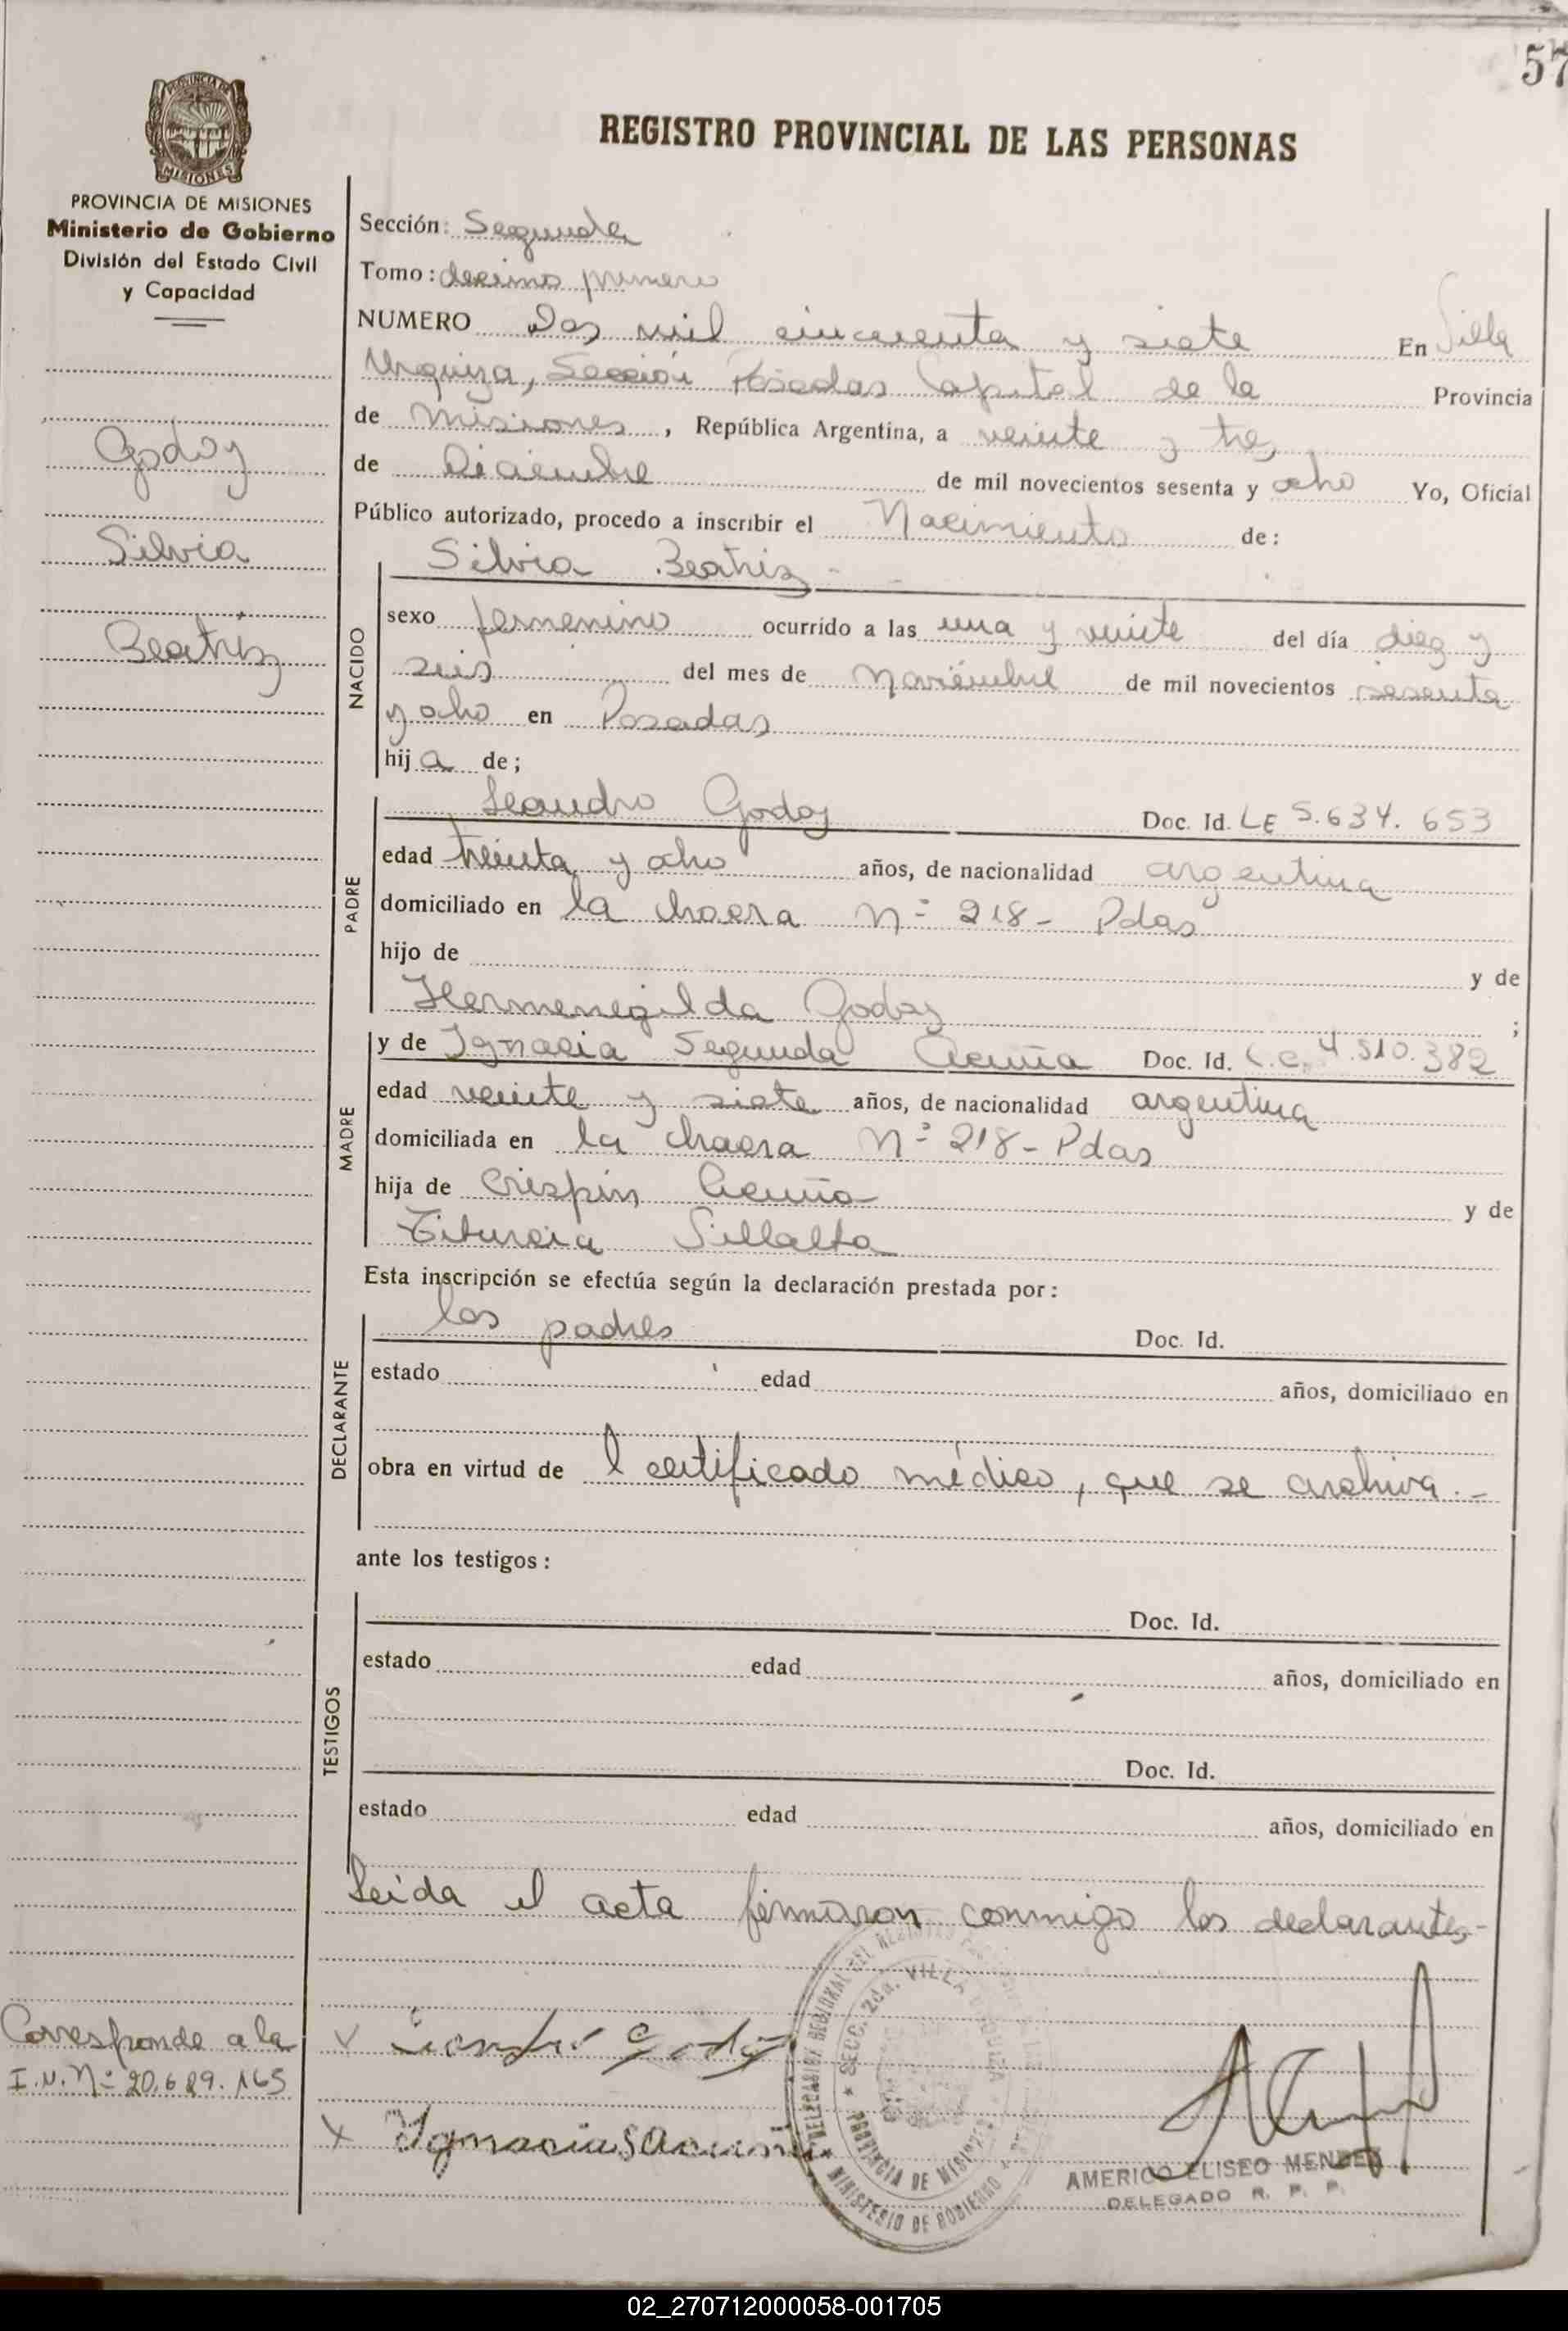 57
PROVINCIA DE MISIONES
Ministerio de Gobierno
División del Estado Civil
y Capacidad
Godoy
Silvia
Beatriz
REGISTRO PROVINCIAL DE LAS PERSONAS
Sección: Segunda
Tomo: decimo primero
NUMERO Dos mil cincuenta y siete En Villa
Urquiza, Sección Posadas Capital de la Provincia
de Misiones, República Argentina, a veinte y tres
de Diciembre de mil novecientos sesenta y ocho Yo, Oficial
Público autorizado, procedo a inscribir el Nacimiento de:
NACIDO
Silvia Beatriz -
sexo femenino ocurrido a las una y veinte del día diez y
seis del mes de Noviembre de mil novecientos sesenta
y ocho en Posadas
hija de;
PADRE
Leandro Godoy Doc. Id. LE 5.634.653
edad treinta y ocho años, de nacionalidad argentina
domiciliado en la chacra Nº 218- Pdas
hijo de y de
Hermenegilda Godoy ;
MADRE
y de Ignacia Segunda Acuña Doc. Id. L.C. 4.510.382
edad veinte y siete años, de nacionalidad argentina
domiciliada en la chacra Nº 218- Pdas
hija de Crispin Acuña y de
Villalta
Esta inscripción se efectúa según la declaración prestada por:
DECLARANTE
los padres Doc. Id.
estado edad años, domiciliado en
obra en virtud de l certificado médico, que se archiva.-
ante los testigos:
TESTIGOS
Doc. Id.
estado edad años, domiciliado en
Doc. Id.
estado edad años, domiciliado en
Leida el acta firmaron conmigo los declarantes-
Corresponde a la
I.N. Nº 20.689.165
Leandro Godoy
Ignacia S Acuña
SECC. 2da. VILLA URQUIZA
PROVINCIA DE MISIONES
MINISTERIO DE GOBIERNO
AMERICO ELISEO MENDEZ
DELEGADO R. P. P.
02_270712000058-001705